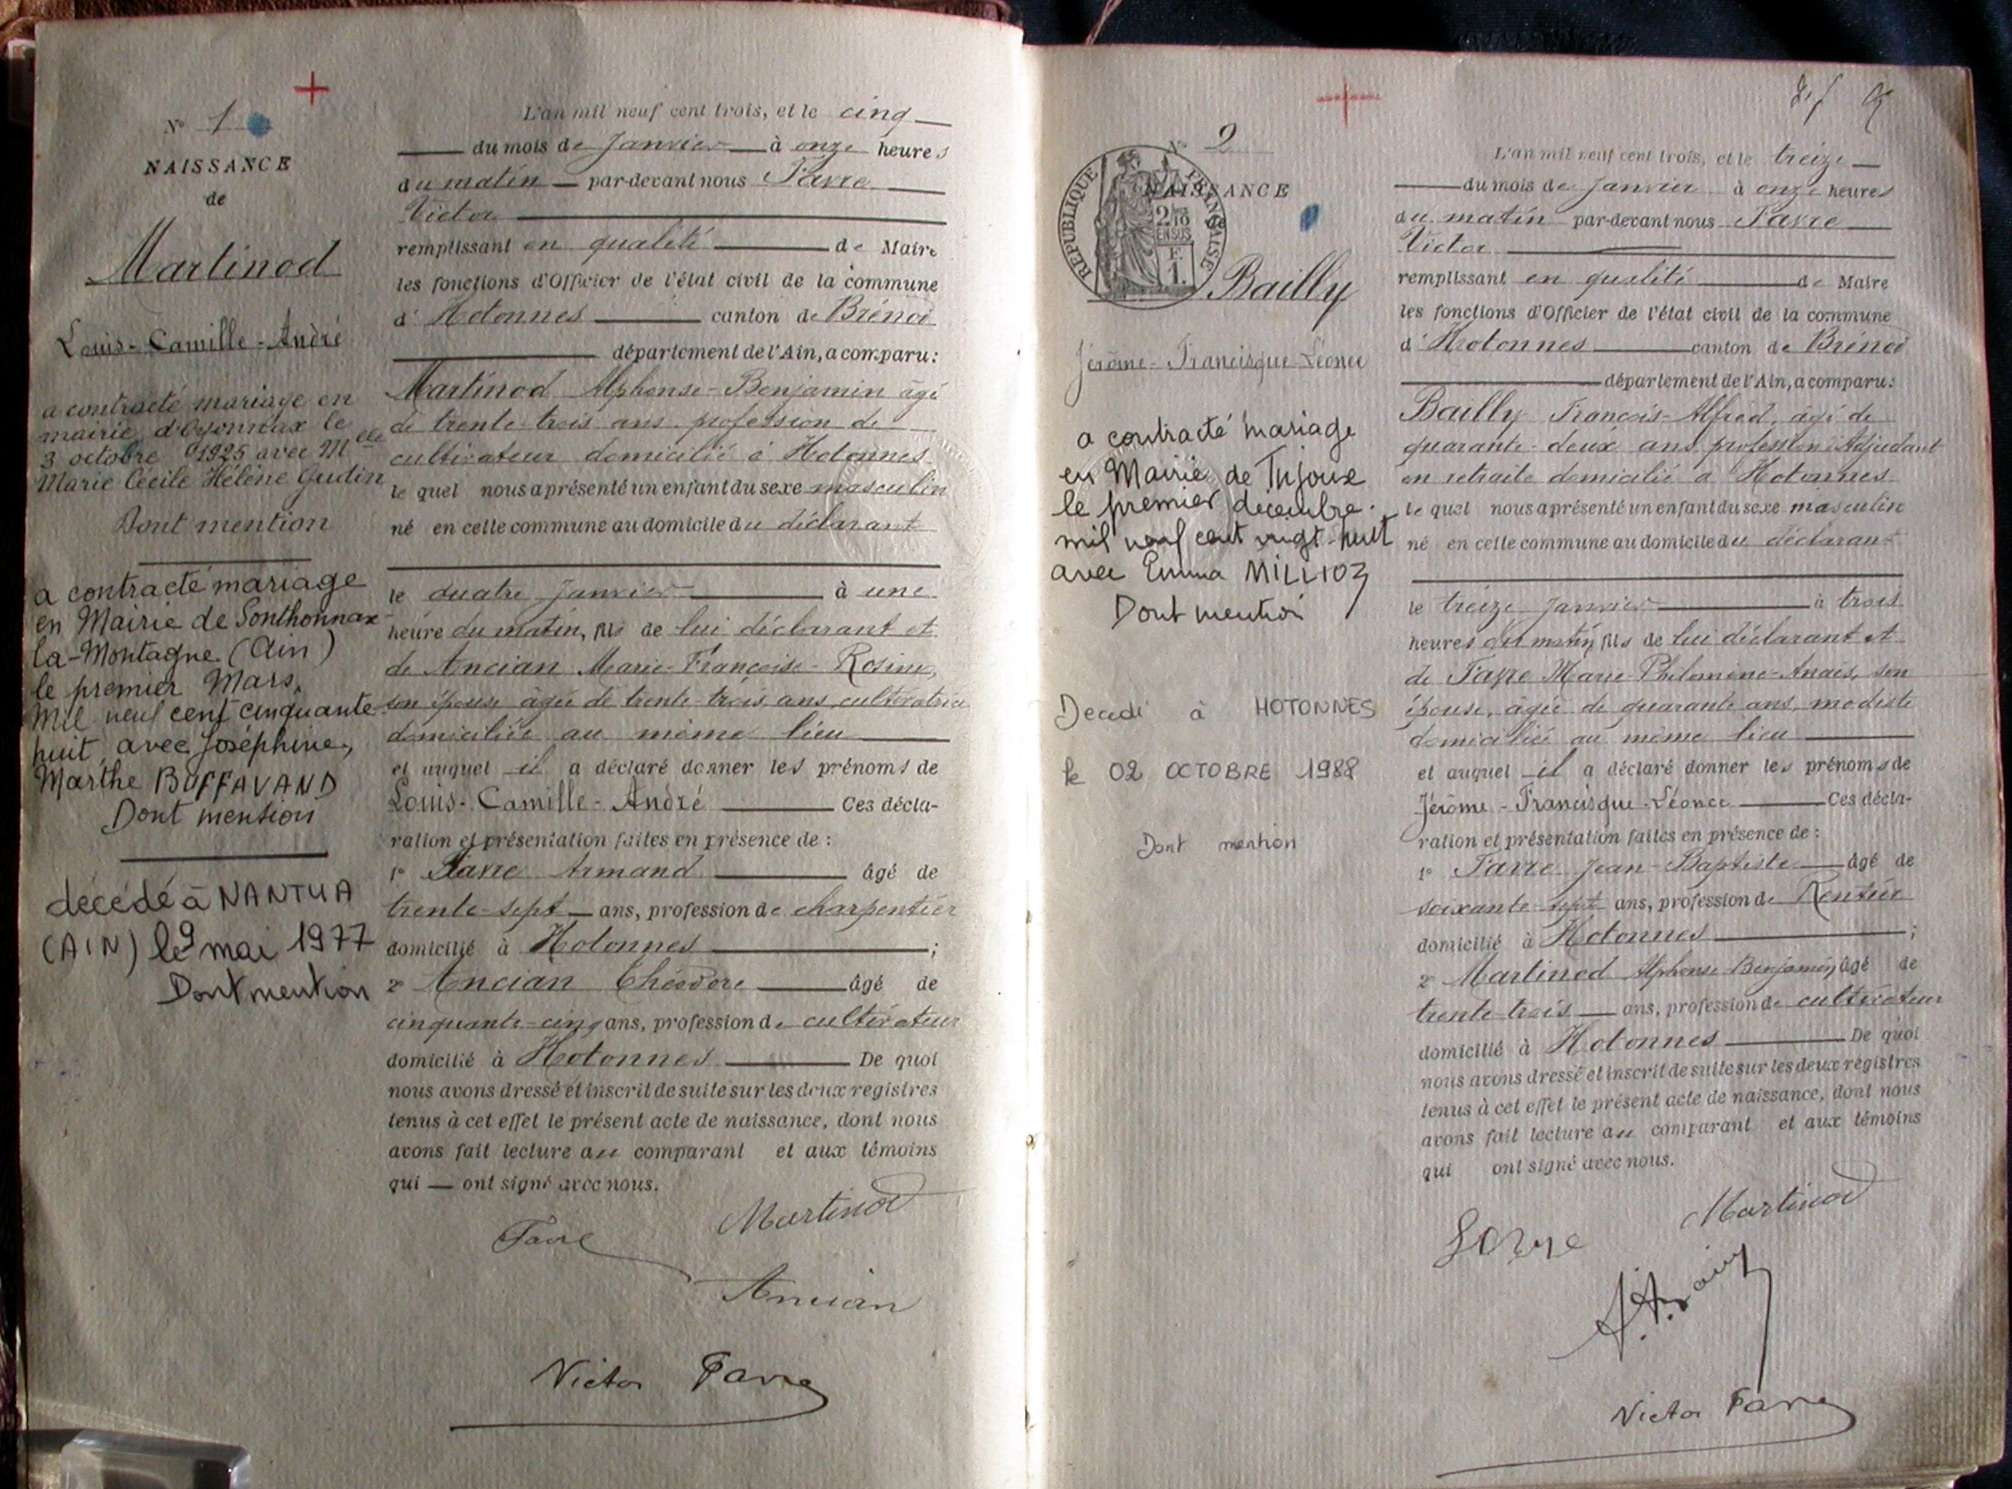 N° 1
NAISSANCE
de
Martinod
Louis-Camille-André
a contracté mariage en
mairie d'Oyonnax le
3 octobre 1925 avec Melle
Marie Cécile Hélène Gudin
Dont mention
a contracté mariage
en Mairie de Sonthonnax
la-Montagne (Ain)
le premier Mars
Mil neuf cent cinquante
huit, avec Joséphine,
Marthe BUFFAVAND
Dont mention
décédé à NANTUA
(AIN) le 9 mai 1977
Dont mention
L'an mil neuf cent trois, et le cinq
du mois de Janvier à onze heures
du matin par-devant nous Favre
Victor
remplissant en qualité de Maire
les fonctions d'Officier de l'état civil de la commune
d'Hotonnes canton de Brénod
département de l'Ain, a comparu:
Martinod Alphonse-Benjamin âgé
de trente trois ans profession de
cultivateur domicilié à Hotonnes
le quel nous a présenté un enfant du sexe masculin
né en cette commune au domicile du déclarant
le quatre Janvier à une
heure du matin, fils de lui déclarant et
de Ancian Marie-Françoise-Rosine,
son épouse âgée de trente-trois ans, cultivatrice
domiciliée au même lieu
et auquel il a déclaré donner les prénoms de
Louis-Camille-André Ces décla-
ration et présentation faites en présence de :
1° Favre Armand âgé de
trente-sept ans, profession de charpentier
domicilié à Hotonnes ;
2° Ancian Théodore âgé de
cinquante-cinq ans, profession de cultivateur
domicilié à Hotonnes De quoi
nous avons dressé et inscrit de suite sur les deux registres
tenus à cet effet le présent acte de naissance, dont nous
avons fait lecture au comparant et aux témoins
qui ont signé avec nous.
Favre Martinod
Ancian
Victor Favre
N° 2
NAISSANCE
RÉPUBLIQUE FRANÇAISE
2/10
EN SUS
F.
1.
Bailly
Jérôme-Francisque-Léonce
a contracté mariage
en Mairie de Injoux
le premier décembre
mil neuf cent vingt-huit
avec Emma MILLIOZ
Dont mention
Décédé à HOTONNES
le 02 OCTOBRE 1988
Dont mention
L'an mil neuf cent trois, et le treize
du mois de Janvier à onze heures
du matin par-devant nous Favre
Victor
remplissant en qualité de Maire
les fonctions d'Officier de l'état civil de la commune
d'Hotonnes canton de Brénod
département de l'Ain, a comparu:
Bailly François-Alfred, âgé de
quarante-deux ans profession Adjudant
en retraite domicilié à Hotonnes
le quel nous a présenté un enfant du sexe masculin
né en cette commune au domicile du déclarant
le treize Janvier à trois
heures du matin, fils de lui déclarant et
de Favre Marie-Philomène-Anaïs, son
épouse, âgée de quarante ans, modiste
domiciliée au même lieu
et auquel il a déclaré donner les prénoms de
Jérôme-Francisque-Léonce Ces décla-
ration et présentation faites en présence de :
1° Favre Jean-Baptiste âgé de
soixante-sept ans, profession de Rentier
domicilié à Hotonnes ;
2° Martinod Alphonse Benjamin, âgé de
trente-trois ans, profession de cultivateur
domicilié à Hotonnes De quoi
nous avons dressé et inscrit de suite sur les deux registres
tenus à cet effet le présent acte de naissance, dont nous
avons fait lecture au comparant et aux témoins
qui ont signé avec nous.
Favre Martinod
Victor Favre